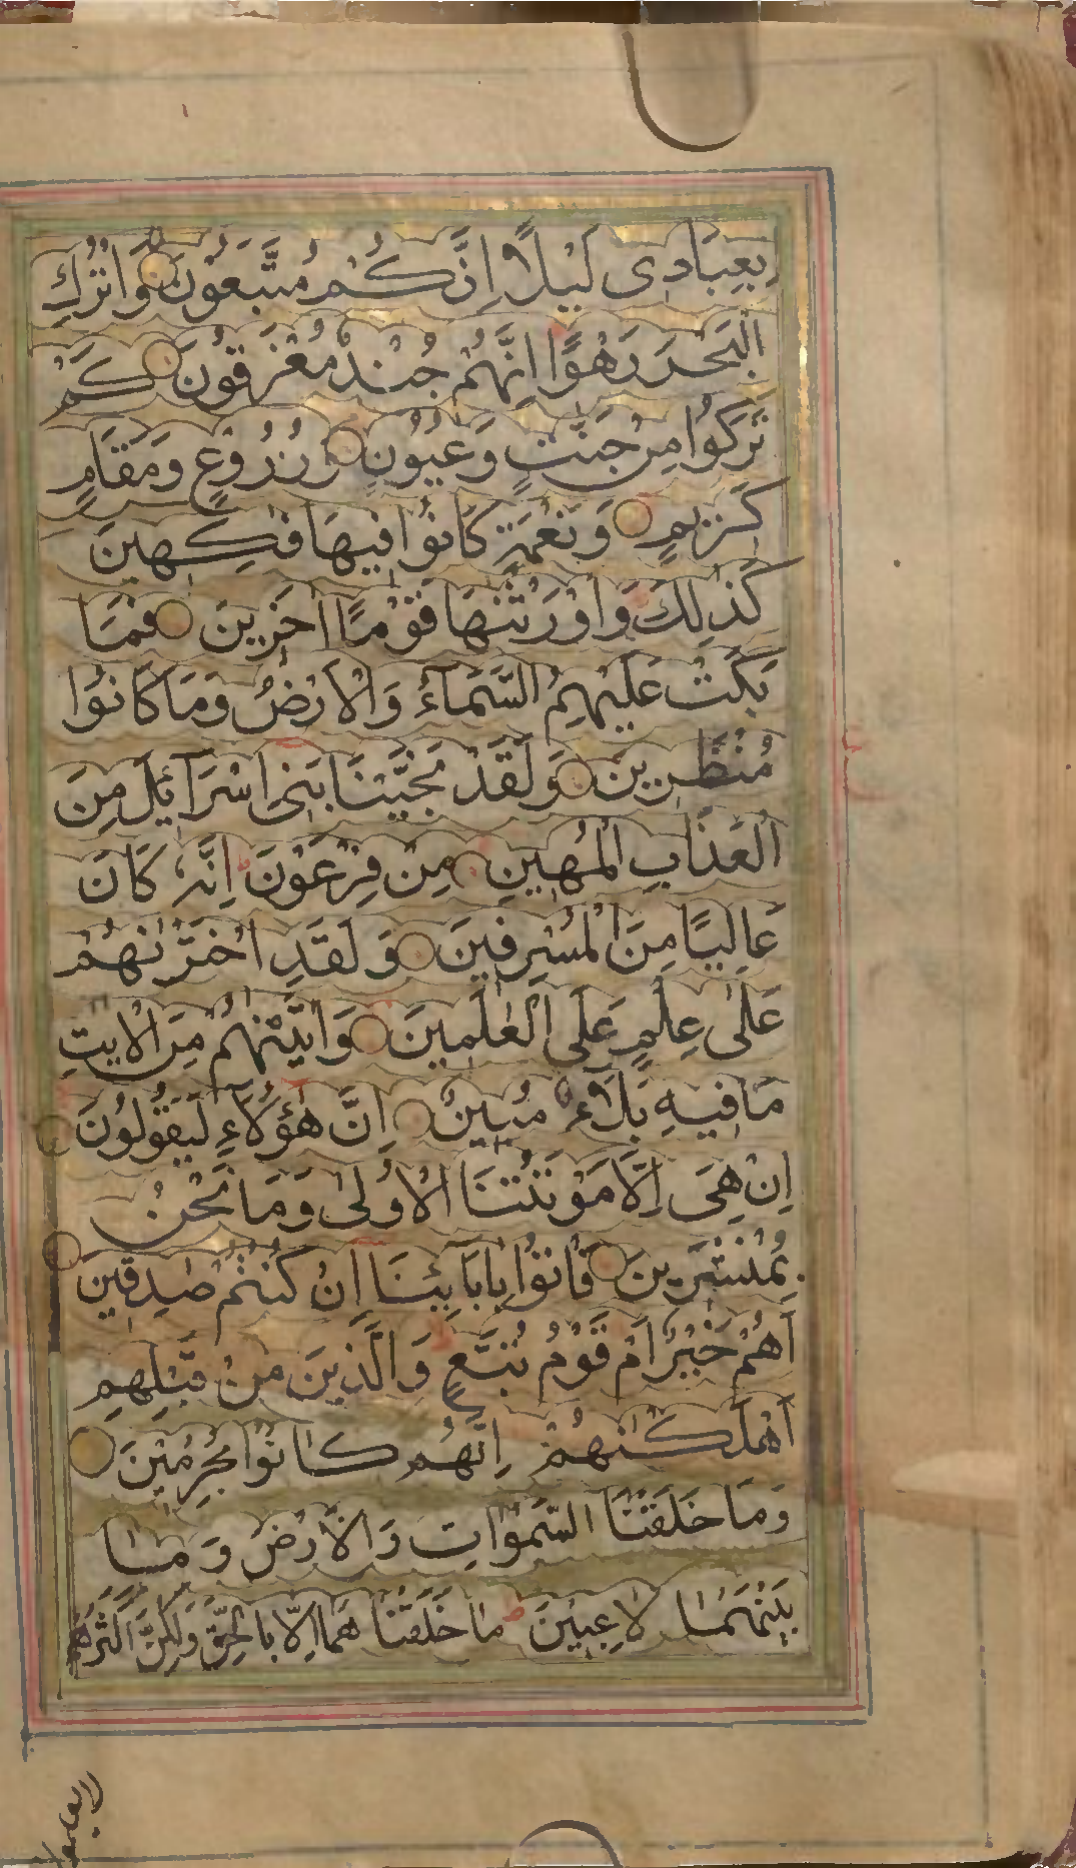 بِعِبَادِى لَيْلًا اِنَّكُمْ مُتَّبَعُوْنَ وَاتْرُكِ
الْبَحْرَ رَهْوًا اِنَّهُمْ جُنْدٌ مُغْرَقُوْنَ كَمْ
تَرَكُوْا مِنْ جَنّٰتٍ وَعُيُوْنٍ وَزُرُوْعٍ وَمَقَامٍ
كَرِيْمٍ وَنَعْمَةٍ كَانُوْا فِيْهَا فٰكِهِيْنَ
كَذٰلِكَ وَاَوْرَثْنٰهَا قَوْمًا اٰخَرِيْنَ فَمَا
بَكَتْ عَلَيْهِمُ السَّمَآءُ وَالْاَرْضُ وَمَا كَانُوْا
مُنْظَرِيْنَ وَلَقَدْ نَجَّيْنَا بَنِى اِسْرَآئِلَ مِنَ
الْعَذَابِ الْمُهِيْنِ مِنْ فِرْعَوْنَ اِنَّهٗ كَانَ
عَالِيًا مِنَ الْمُسْرِفِيْنَ وَلَقَدِ اخْتَرْنٰهُمْ
عَلٰى عِلْمٍ عَلَى الْعٰلَمِيْنَ وَاٰتَيْنٰهُمْ مِنَ الْاٰيٰتِ
مَا فِيْهِ بَلٰٓؤٌا مُبِيْنٌ اِنَّ هٰٓؤُلَآءِ لَيَقُوْلُوْنَ
اِنْ هِىَ اِلَّا مَوْتَتُنَا الْاُوْلٰى وَمَا نَحْنُ
بِمُنْشَرِيْنَ فَاْتُوْا بِاٰبَآئِنَا اِنْ كُنْتُمْ صٰدِقِيْنَ
اَهُمْ خَيْرٌ اَمْ قَوْمُ تُبَّعٍ وَالَّذِيْنَ مِنْ قَبْلِهِمْ
اَهْلَكْنٰهُمْ اِنَّهُمْ كَانُوْا مُجْرِمِيْنَ
وَمَا خَلَقْنَا السَّمٰوَاتِ وَالْاَرْضَ وَمَا
بَيْنَهُمَا لَاعِبِيْنَ مَا خَلَقْنَا هُمَا اِلَّا بِالْحَقِّ وَلٰكِنَّ اَكْثَرَهُمْ
لا يعلمون